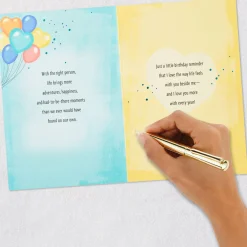 With the right person,
life brings more
adventures/happiness,
and had-to-be-there moments
than we ever would have
found on our own.
Just a little birthday reminder
that I love the way life feels
with you beside me—
and I love you more
with every year!